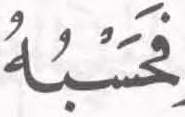 فَحَسْبُهُ